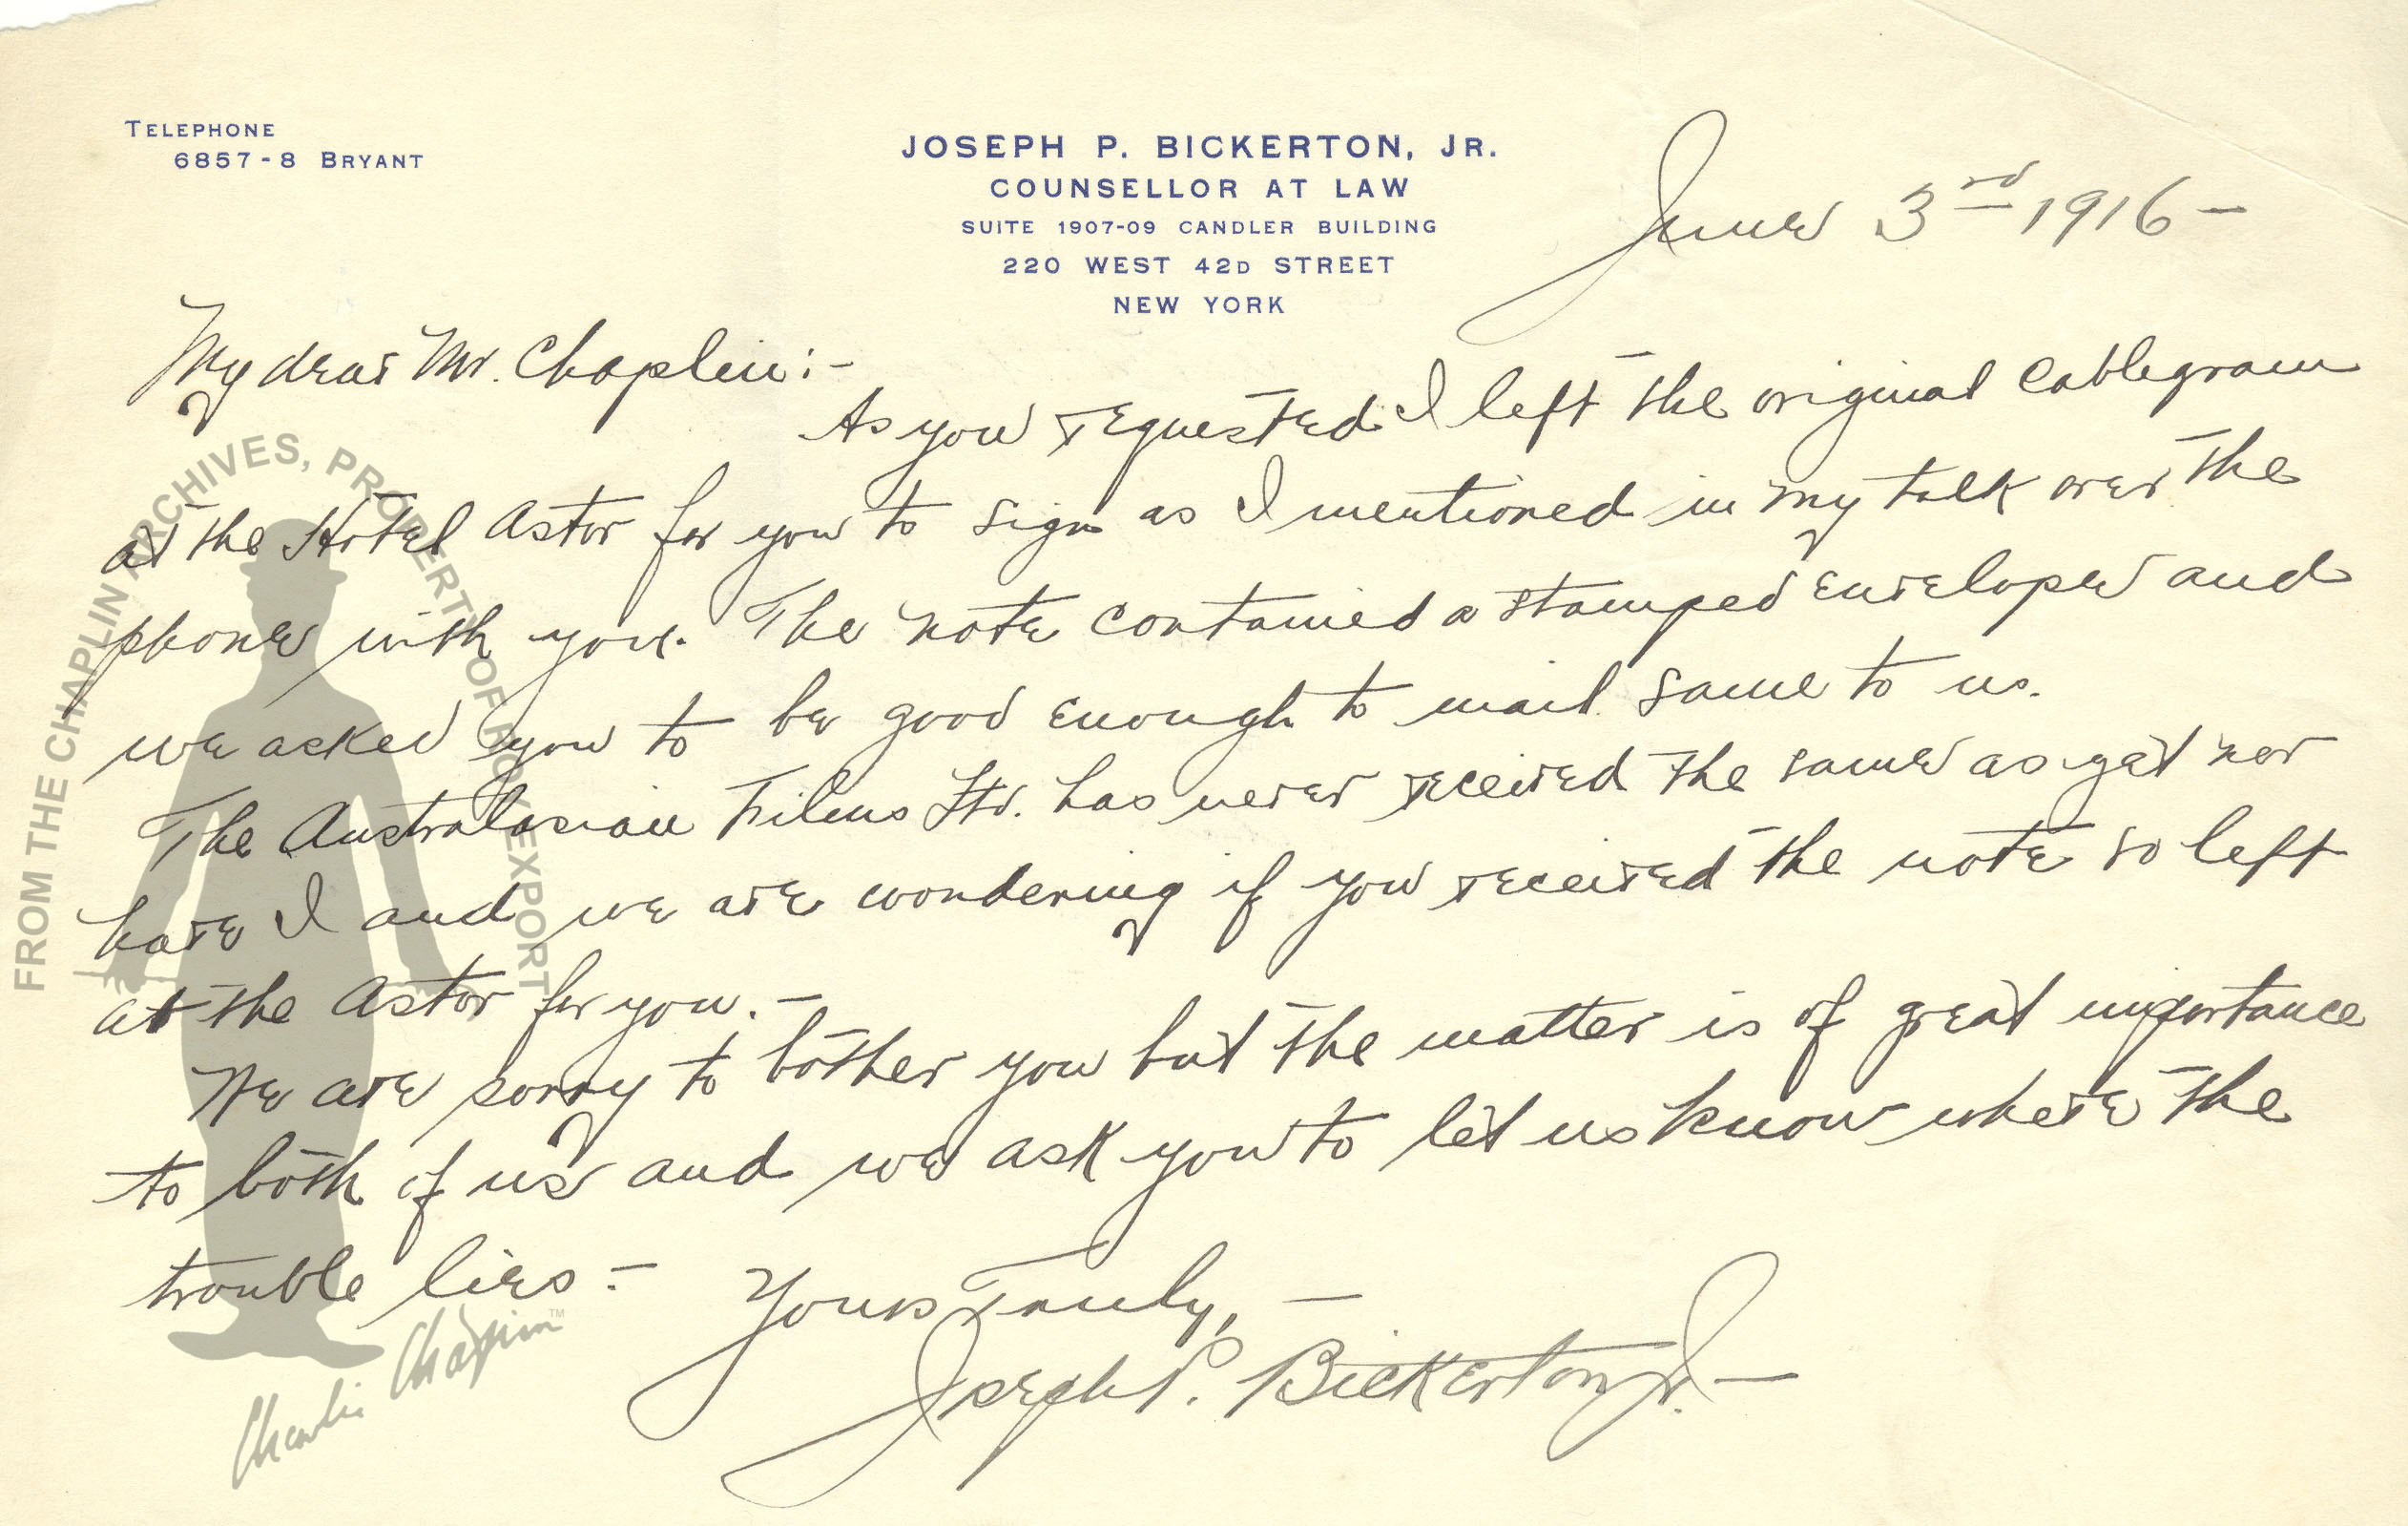 TELEPHONE
6857-8 BRYANT
JOSEPH P. BICKERTON, JR.
COUNSELLOR AT LAW
SUITE 1907-09 CANDLER BUILDING
220 WEST 42D STREET
NEW YORK
June 3rd 1916 -
My dear Mr. Chaplin:-
As you requested I left the original cablegram
at the Hotel Astor for you to sign as I mentioned in my talk over the
phone with you. The note contained a stamped envelope and
we asked you to be good enough to mail same to us.
The Australasian Films Ltd. has never received the same as yet nor
have I and we are wondering if you received the note so left
at the Astor for you. -
We are sorry to bother you but the matter is of great importance
to both of us and we ask you to let us know where the
trouble lies -
Yours Truly, -
Joseph P. Bickerton Jr. -
FROM THE CHAPLIN ARCHIVES, PROPERTY OF ROY EXPORT
Charlie Chaplin™